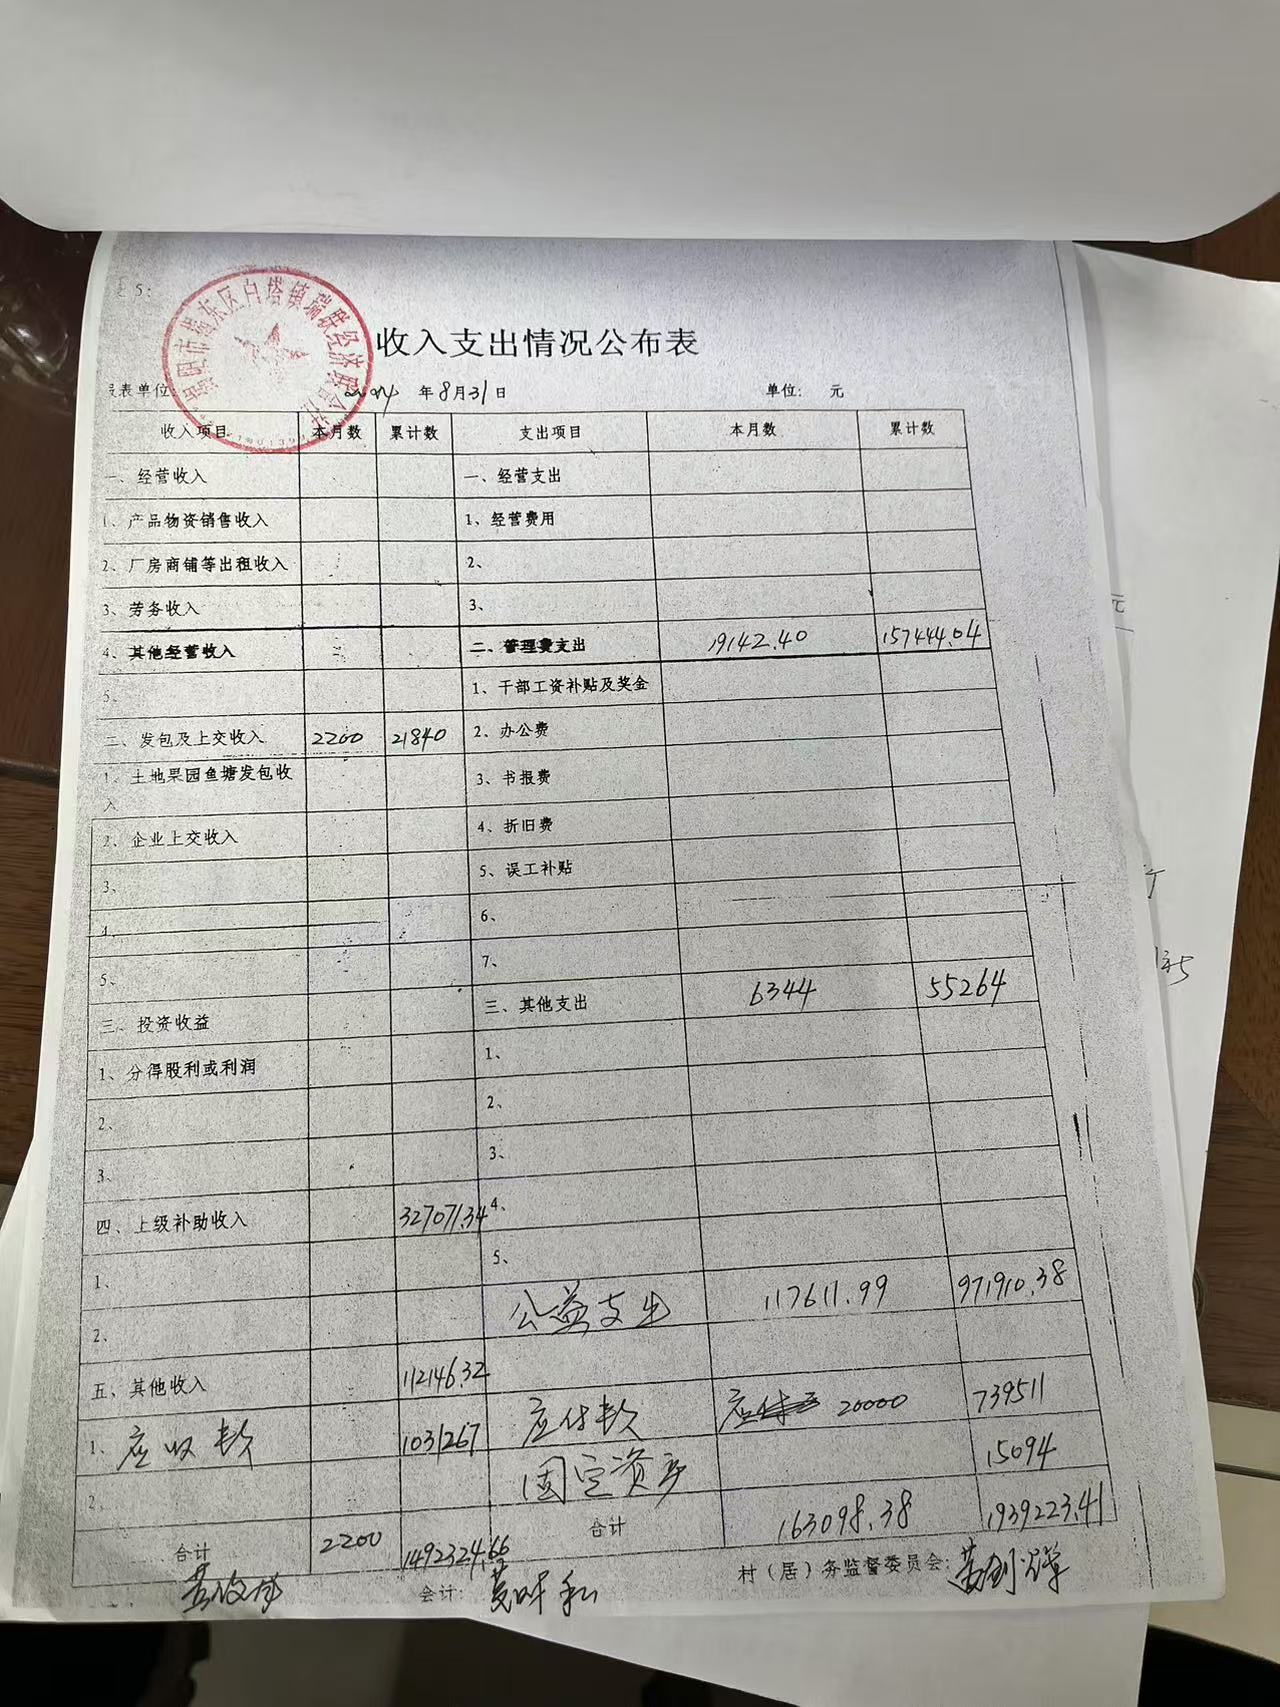 5:
揭阳市揭东区白塔镇瑞联经济联合社
收入支出情况公布表
表单位: 2024 年 8 月 31 日 单位: 元
收入项目 本月数 累计数 支出项目 本月数 累计数
一、经营收入 一、经营支出
1、产品物资销售收入 1、经营费用
2、厂房商铺等出租收入 2、
3、劳务收入 3、
4、其他经营收入 二、管理费支出 19142.40 157444.04
5、 1、干部工资补贴及奖金
二、发包及上交收入 2200 21840 2、办公费
1、土地果园鱼塘发包收入 3、书报费
2、企业上交收入 4、折旧费
3、 5、误工补贴
4、 6、
5、 7、
三、投资收益 三、其他支出 6344 55264
1、分得股利或利润 1、
2、 2、
3、 3、
四、上级补助收入 327071.34 4、
1、 5、
2、 公益支出 117611.99 971910.38
五、其他收入 112146.32
1、应收款 1031267 应付款 20000 739511
2、 固定资产 15094
合计 2200 1492324.66 合计 163098.38 1939223.41
会计: 村（居）务监督委员会: